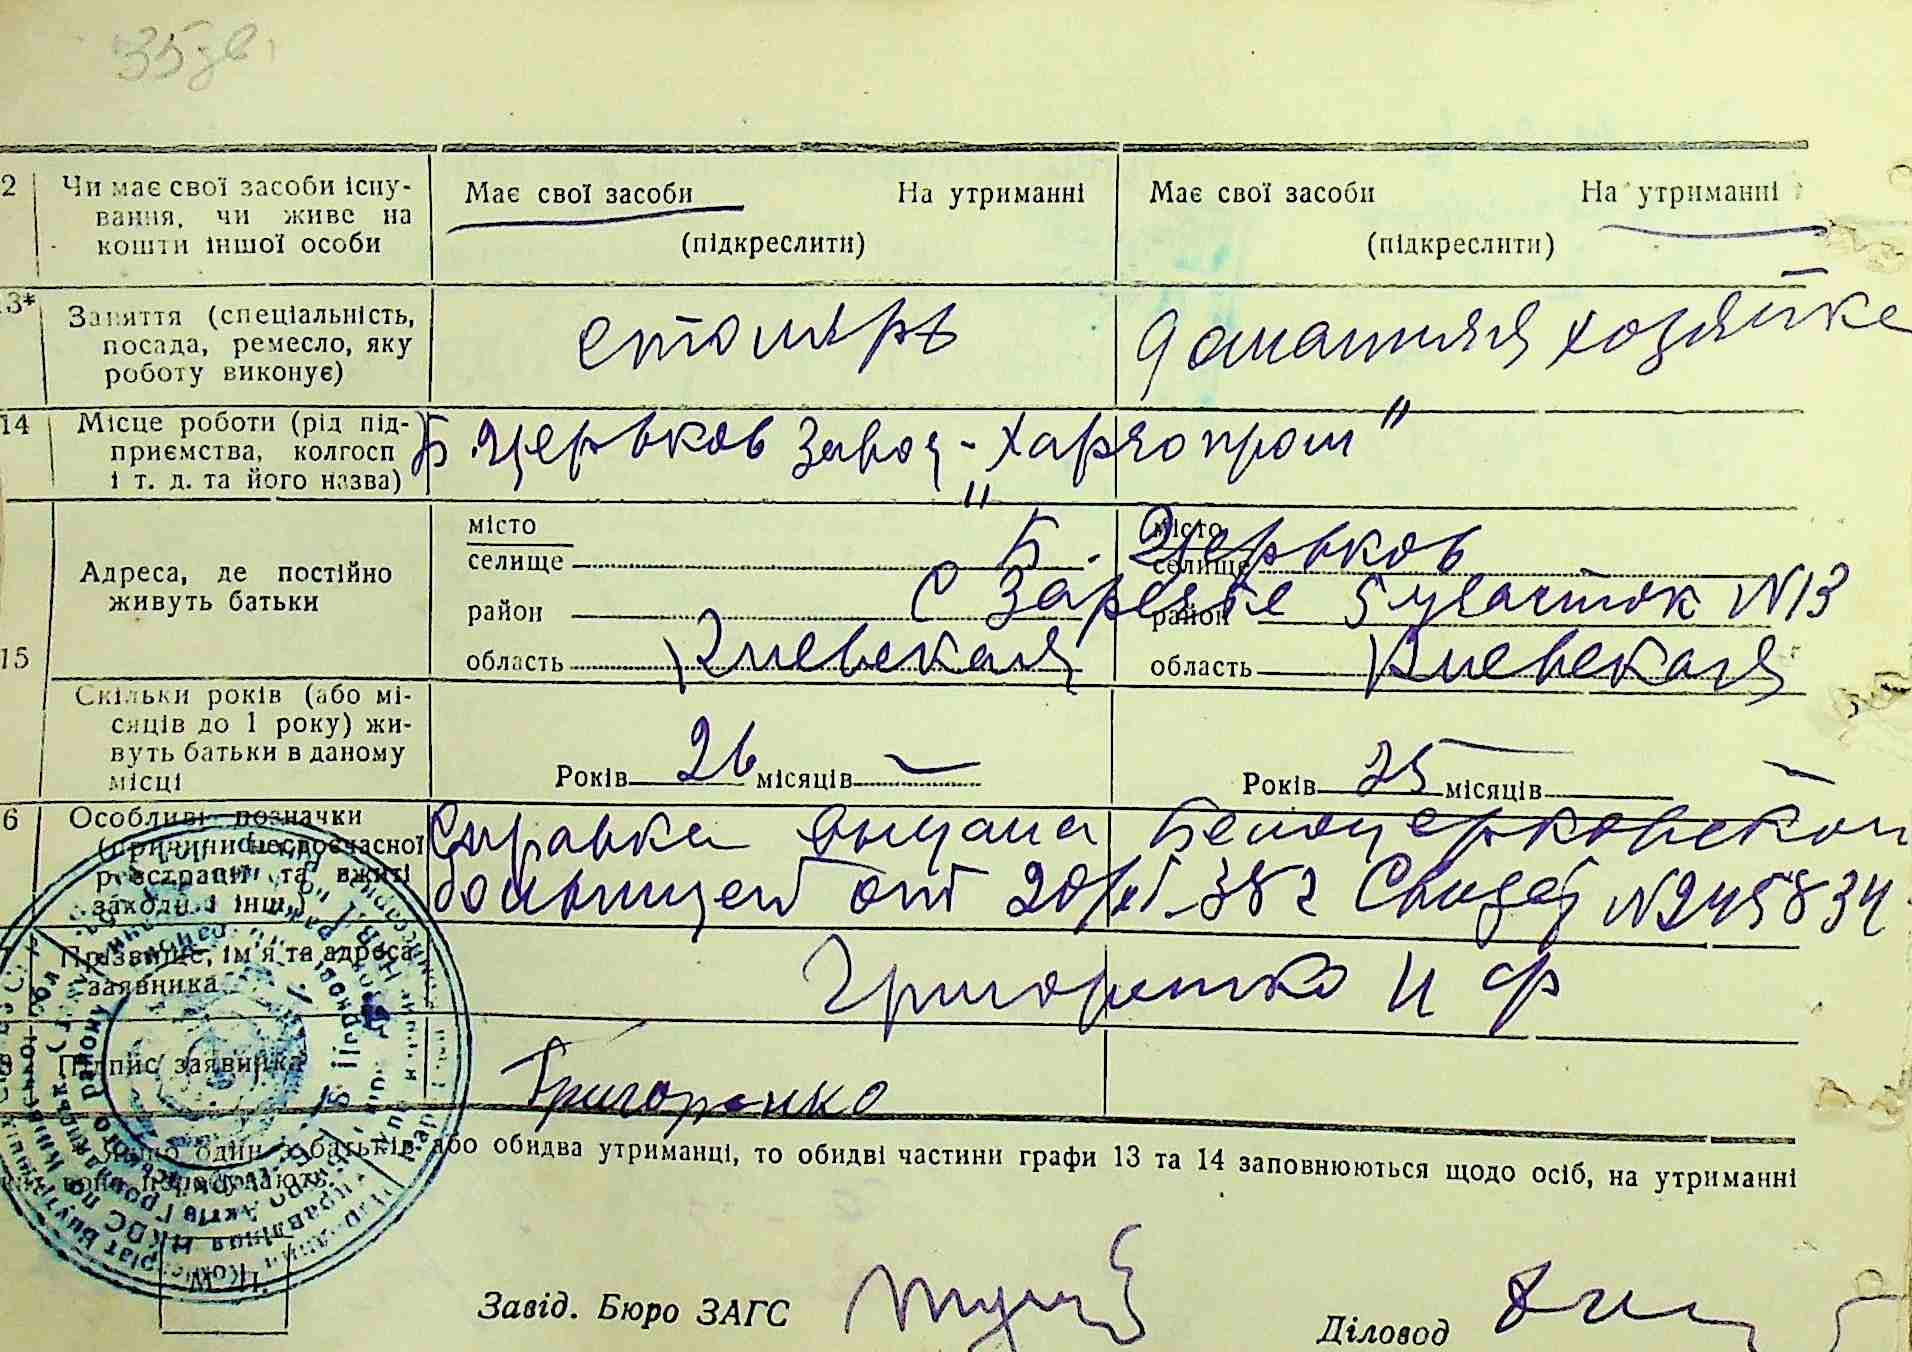 35зв.
2 Чи має свої засоби існу-
вання, чи живе на
кошти іншої особи
Має свої засоби На утриманні
(підкреслити)
Має свої засоби На утриманні
(підкреслити)
3* Заняття (спеціальність,
посада, ремесло, яку
роботу виконує)
столяръ
домашняя хозяйка
14 Місце роботи (рід під-
приємства, колгосп
і т. д. та його назва)
Б Церьков Завод "Харчопром"
15 Адреса, де постійно
живуть батьки
місто
селище
район
область Киевская
місто
селище
район
область Киевская
Б. Церьков
с Заречье 5 участок N13
Скільки років (або мі-
сяців до 1 року) жи-
вуть батьки в даному
місці
Років 26 місяців —
Років 25 місяців —
6 Особливі позначки
(причини несвоєчасної
реєстрації та вжиті
заходи і інш.)
Справка выдана Белоцерковской
больницей от 20/XI-38г N245834
Прізвище, ім'я та адреса
заявника
Григоренко И Ф
8 Підпис заявника
Григоренко
Якщо один з батьків або обидва утриманці, то обидві частини графи 13 та 14 заповнюються щодо осіб, на утриманні
Завід. Бюро ЗАГС
Діловод